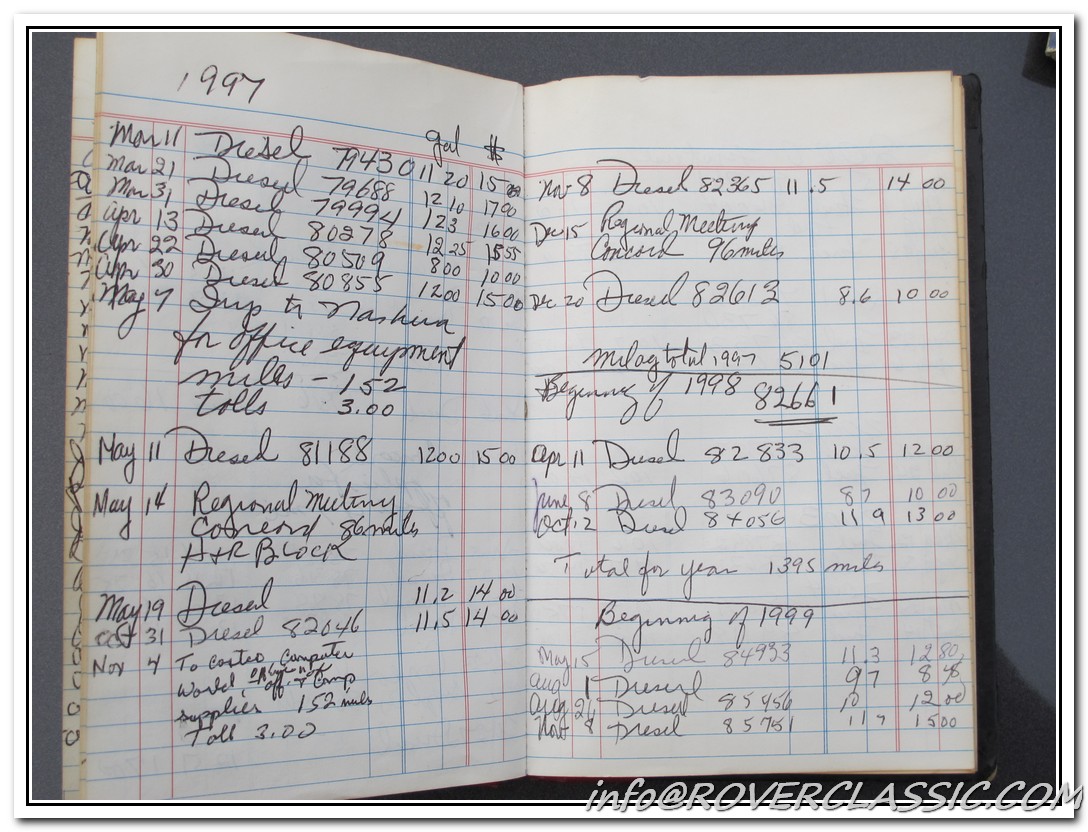 1997
gal $
Mar 11 Diesel 79430 11 20 15
Mar 21 Diesel 79688 12 10 17 90
Mar 31 Diesel 79994 12 3 16 00
Apr 13 Diesel 80278 12 25 15 55
Apr 22 Diesel 80509 8 00 10 00
Apr 30 Diesel 80855 12 00 15 00
May 7 Trip to Nashua
for office equipment
miles - 152
tolls 3.00
May 11 Diesel 81188 12 00 15 00
May 14 Regional Meeting
Concord 86 miles
H+R BLOCK
May 19 Diesel 11.2 14 00
Oct 31 Diesel 82046 11.5 14 00
Nov 4 To Costco, Computer
World, off + Comp
supplies 152 miles
Toll 3.00
Nov 8 Diesel 82365 11.5 14 00
Dec 15 Regional Meeting
Concord 96 miles
Dec 20 Diesel 82613 8.6 10 00
Milag total 1997 5101
Beginning of 1998 82661
Apr 11 Diesel 82833 10.5 12 00
June 8 Diesel 83090 8 7 10 00
Oct 12 Diesel 84056 11 9 13 00
Total for year 1395 miles
Beginning of 1999
May 15 Diesel 84933 11 3 12 80
Aug 1 Diesel 9 7
Aug 21 Diesel 85456 10 12 00
Nov 8 Diesel 85751 11 7 15 00
info@ROVERCLASSIC.COM